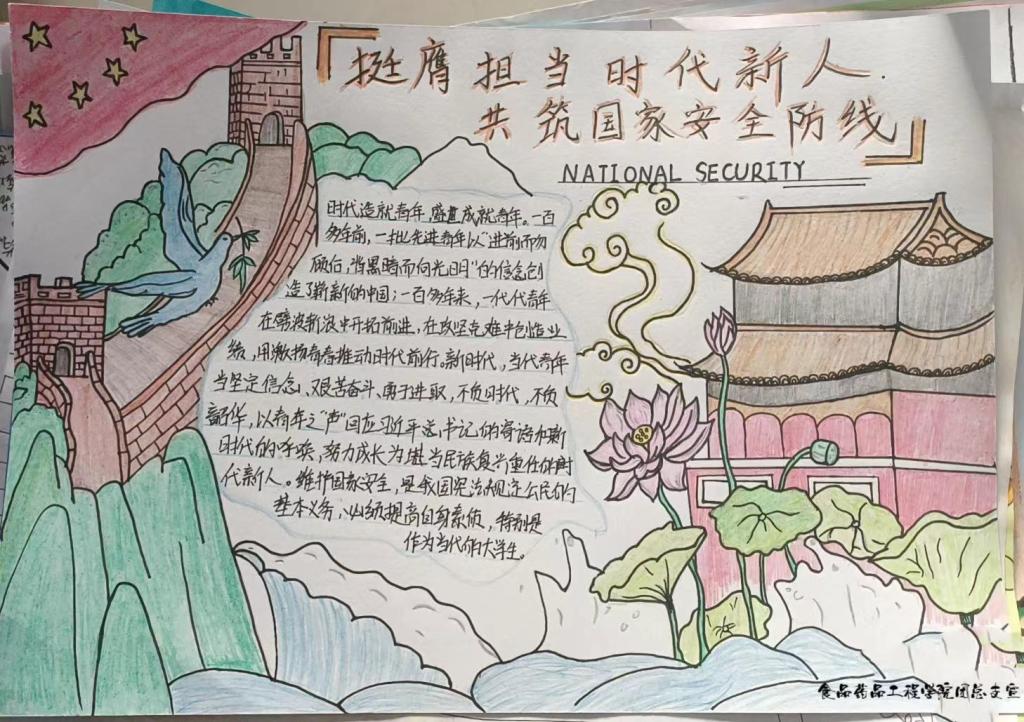 挺膺担当时代新人
共筑国家安全防线
NATIONAL SECURITY
时代造就青年,盛世成就青年。一百
多年前,一批先进青年以“进前而勿
顾后,背黑暗而向光明”的信念创
造了崭新的中国;一百多年来,一代代青年
在劈波斩浪中开拓前进,在攻坚克难中创造业
绩,用激扬青春推动时代前行。新时代,当代青年
当坚定信念、艰苦奋斗、勇于进取,不负时代,不负
韶华,以青年之“声”回应习近平总书记的寄语和新
时代的呼唤,努力成长为堪当民族复兴重任的时
代新人。维护国家安全,是我国宪法规定公民的
基本义务,必须提高自身素质,特别是
作为当代的大学生。
食品药品工程学院团总支宣